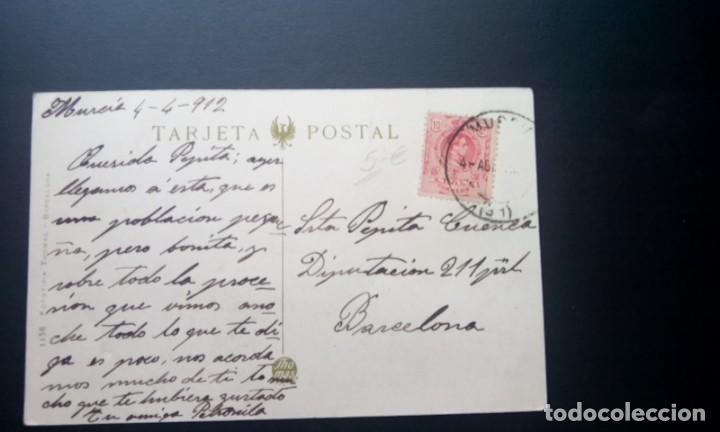 Murcia 4-4-912
TARJETA POSTAL
5 €
Querida Pepita; ayer
llegamos á ésta, que es
una poblacion peque
ña, pero bonita, y
sobre todo la proce
sion que vimos ano
che todo lo que te di
ga es poco, nos acorda
mos mucho de ti
cho que te hubiera gustado
Tu amiga Petronila
Srta Pepita Cuenca
Diputacion 211
Barcelona
MURCIA
4-AB
Thomas
1156 Fototipia Thomas - Barcelona
todocoleccion
todocoleccion.net